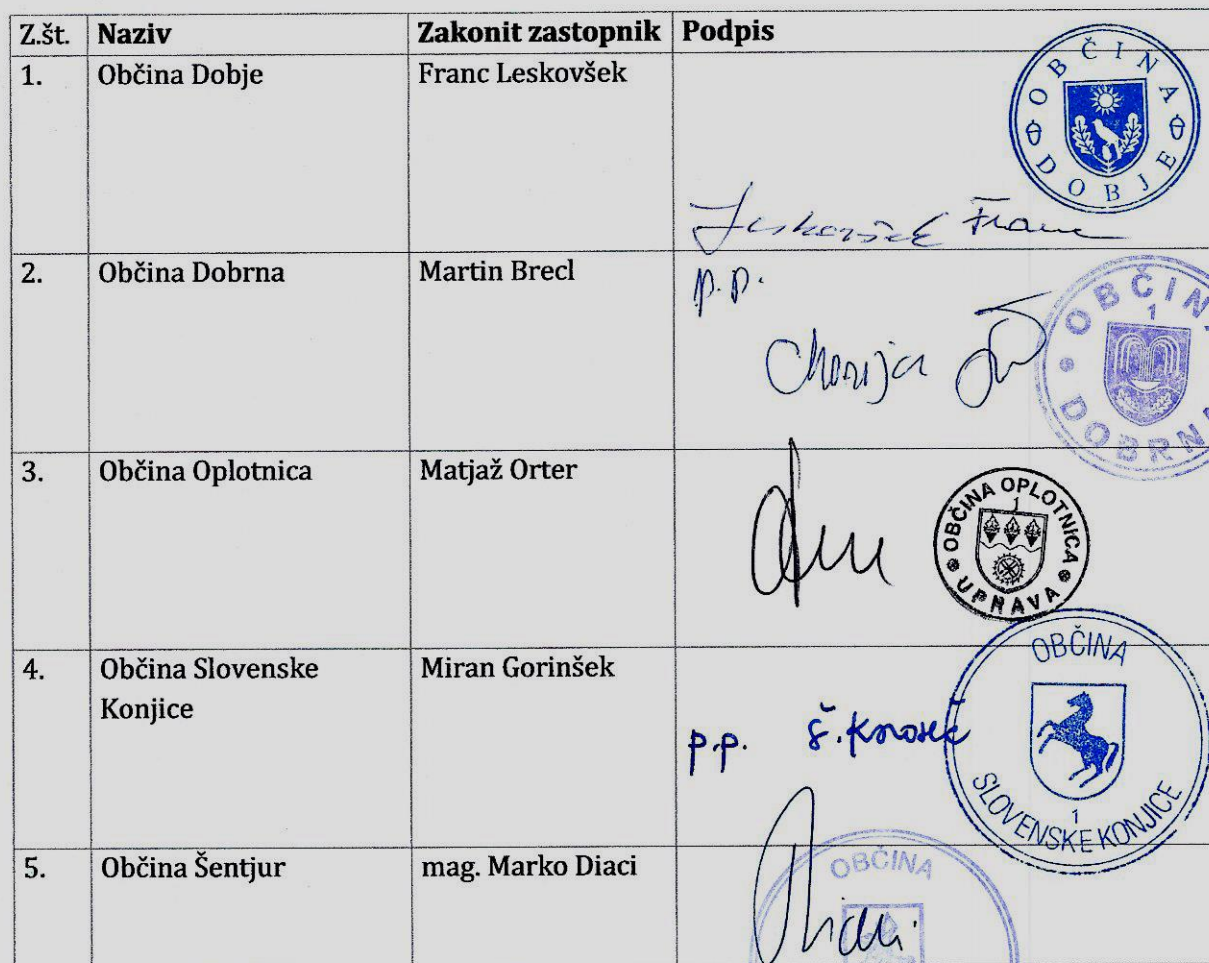 Z.št. Naziv Zakonit zastopnik Podpis
1. Občina Dobje Franc Leskovšek
OBČINA DOBJE
Leskovšek Franc
2. Občina Dobrna Martin Brecl p.p.
OBČINA
1
DOBRNA
3. Občina Oplotnica Matjaž Orter
OBČINA OPLOTNICA
1
UPRAVA
4. Občina Slovenske Miran Gorinšek
Konjice
p.p.
OBČINA
1
SLOVENSKE KONJICE
5. Občina Šentjur mag. Marko Diaci
OBČINA